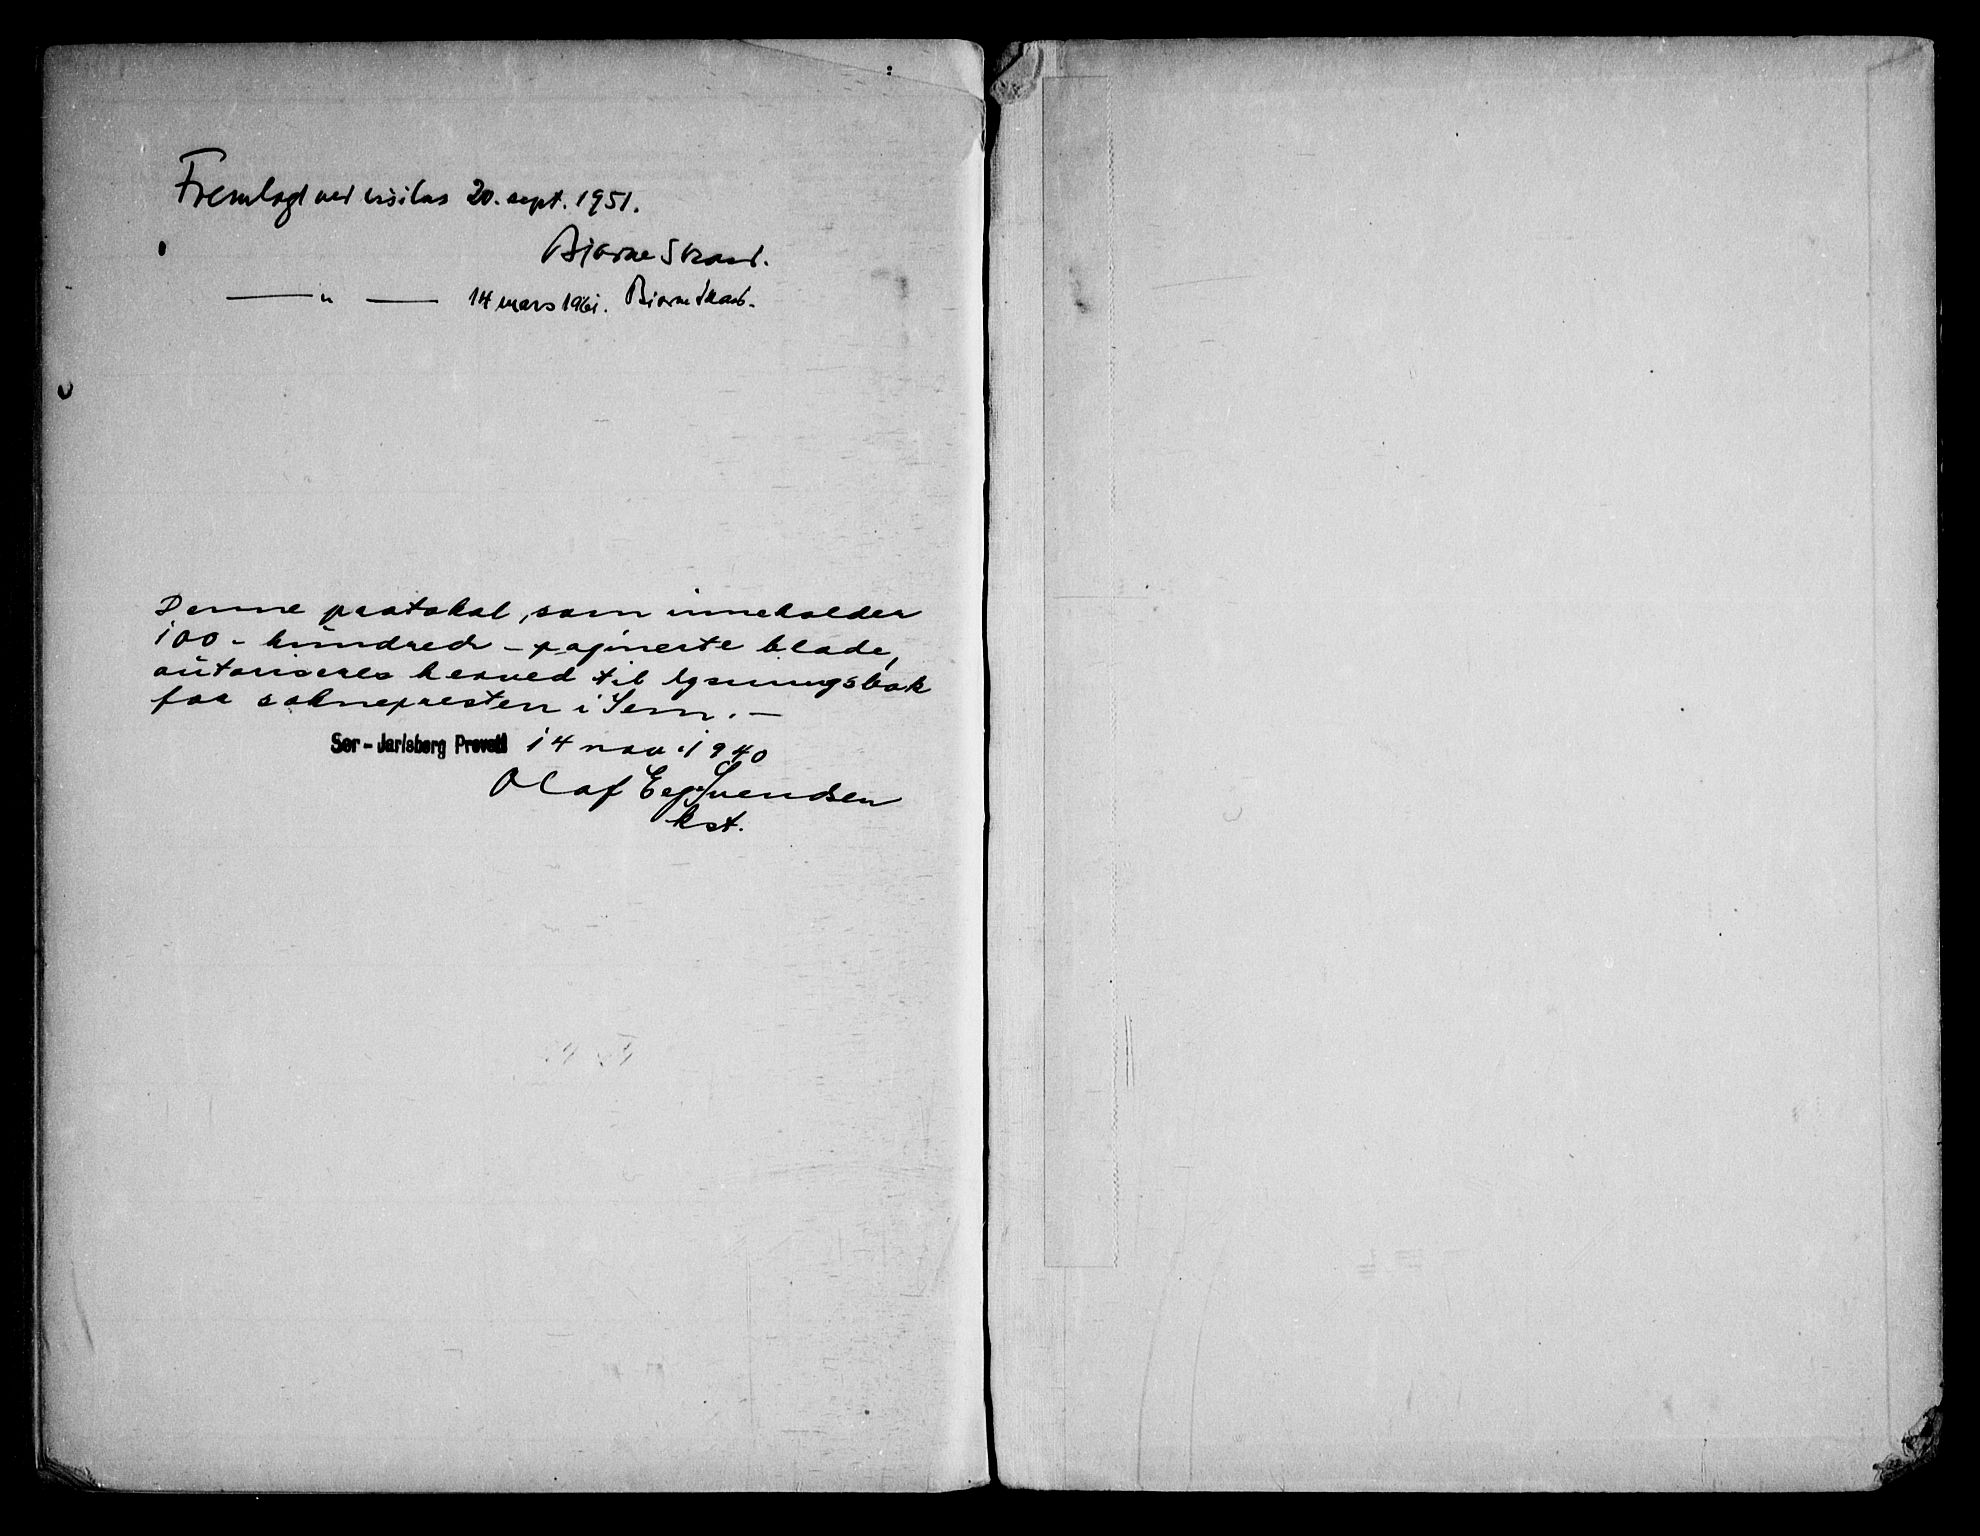 Fremlagt ved visitas 20. sept. 1951.
Bjarne Skard.
— " — 14 mars 1961. Bjarne Skard.
Denne protokol, som inneholder
100 - hundrede - paginerte blade,
autoriseres herved til lysningsbok
for soknepresten i Sem. —
Sør-Jarlsberg Prosti 14 nov. 1940
Olaf Eeg Svendsen
kst.